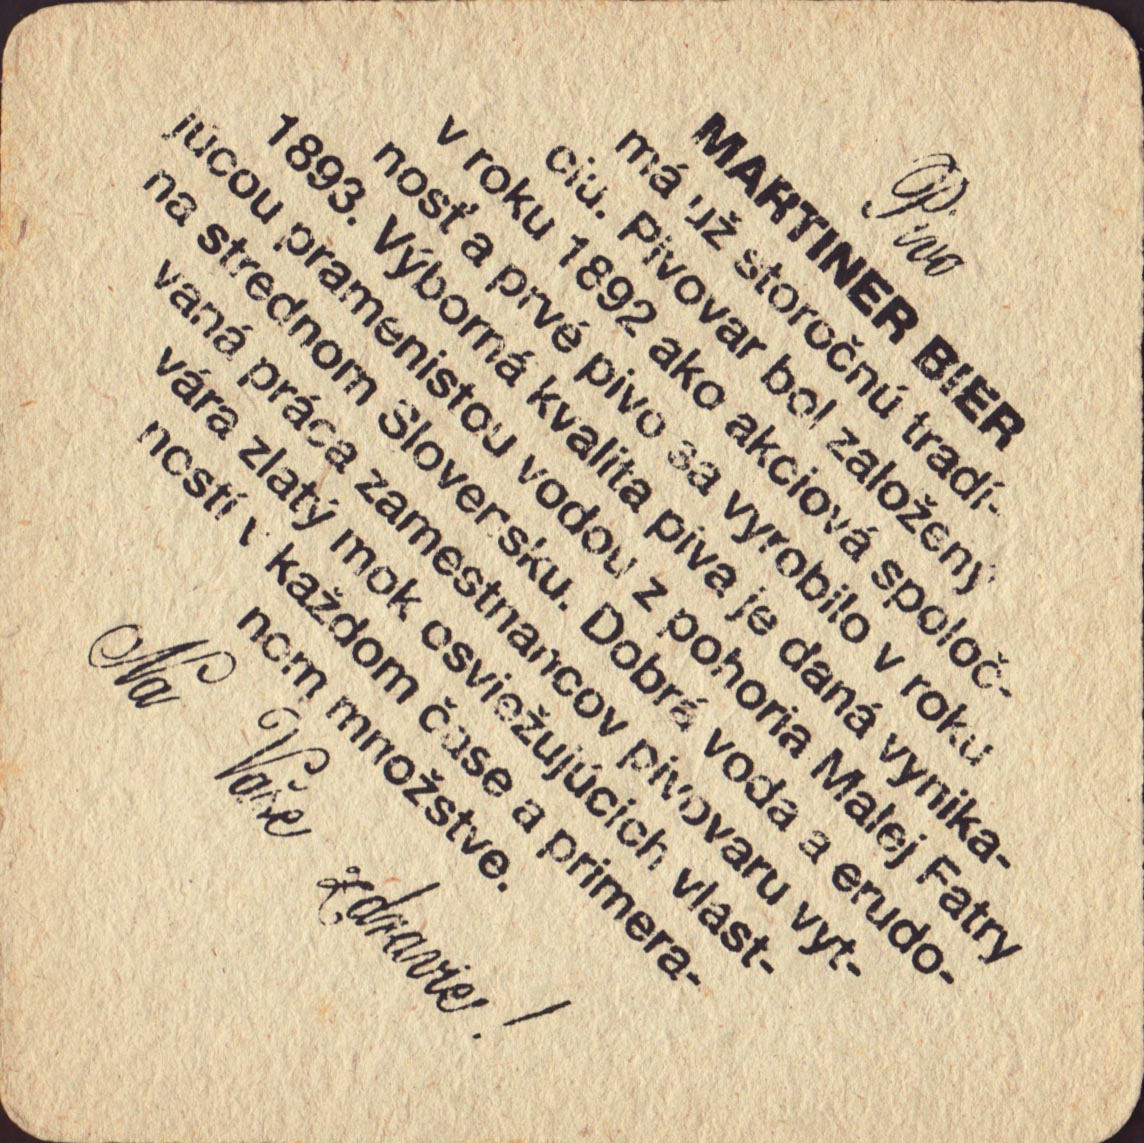 Pivo
MARTINER BIER
má už storočnú tradí-
ciu. Pivovar bol založený
v roku 1892 ako akciová spoloč-
nosť a prvé pivo sa vyrobilo v roku
1893. Výborná kvalita piva je daná vynika-
júcou pramenistou vodou z pohoria Malej Fatry
na strednom Slovensku. Dobrá voda a erudo-
vaná práca zamestnancov pivovaru vyt-
vára zlatý mok osviežujúcich vlast-
ností v každom čase a primera-
nom množstve.
Na Vaše zdravie!